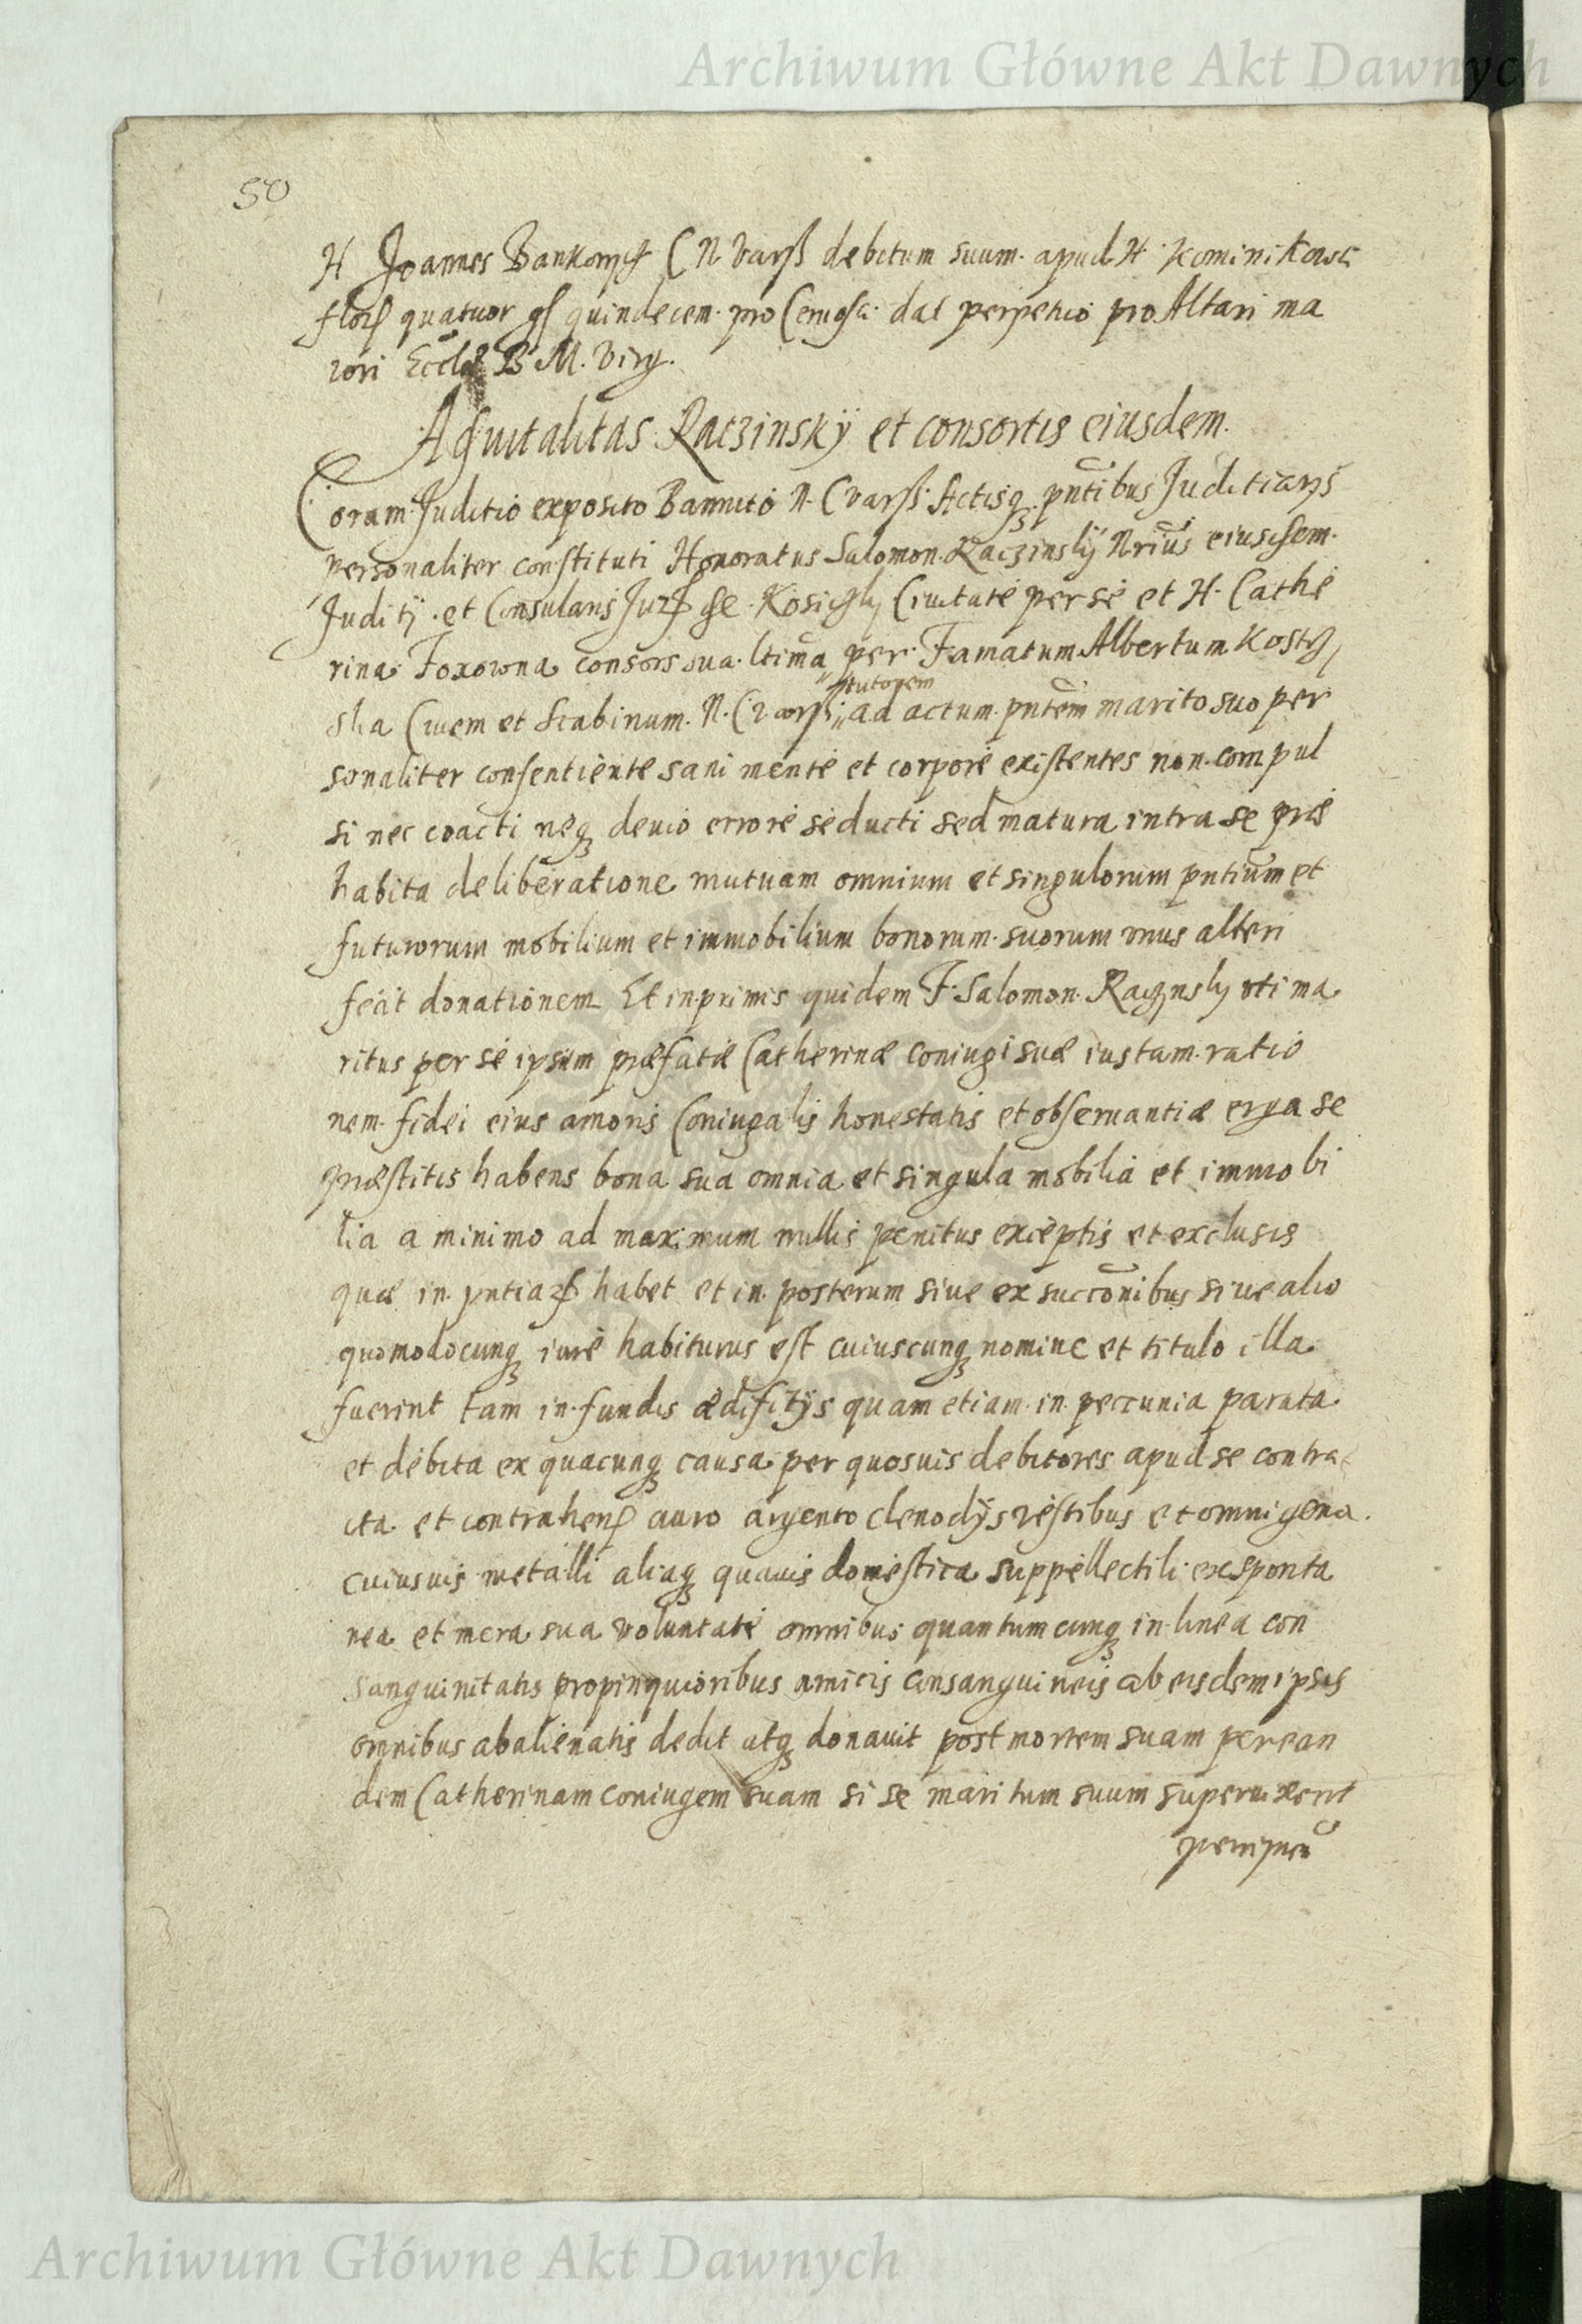 Archiwum Główne Akt Dawnych
50
H Joannes Bankow C N Varß debitum suum apud H
quatuor gs quindecem pro dat perpetuo pro Altari ma
iori Eccl B M. Virg.
Aduitalitas Raczinskÿ et consortis eiusdem.
Coram Juditio exposito Bannito N. C Varß Actisq pntibus
personaliter constituti Honoratus Salomon Raczinskÿ Nrius eiusdem
Juditÿ et Consularis de Ciuitate per se et H. Cathe
rina Foxowna consors sua ltima per Famatum Albertum Kosty
tutorem
ska Ciuem et Scabinum N. C Varß ad actum pntem marito suo per
sonaliter consentiente sani mente et corpore existentes non compul
si nec coacti neq deuio errore seducti sed matura intra se præ
habita deliberatione mutuam omnium et singulorum pntium et
futurorum mobilium et immobilium bonorum suorum vnus alteri
fecit donationem Et in primis quidem F. Salomon Raczynsky vti ma
ritus per se ipsum præfatæ Catherinæ coniugi suæ iustam ratio
nem fidei eius amoris Coniugalis honestatis et obseruantiæ erga se
præstitis habens bona sua omnia et singula mobilia et immobi
lia a minimo ad maximum nullis penitus exceptis et exclusis
quæ in habet et in posterum siue ex succonibus siue alio
quomodocunq iure habiturus est cuiuscunq nomine et titulo illa
fuerint tam in fundis ædifitÿs quam etiam in peccunia parata
et debita ex quacunq causa per quosuis debitores apud se contra
cta et contrahen auro argento clenodÿs vestibus et omnigena
cuiusuis metalli aliaq quauis domestica suppellectili ex sponta
nea et mera sua voluntate omnibus quantumcunq in linea con
sanguinitatis propinquioribus amicis consanguineis ab eisdem ipsis
omnibus abalienatis dedit atq donauit post mortem suam per ean
dem Catherinam coniugem suam si se maritum suum superuixerit
Archiwum Główne Akt Dawnych